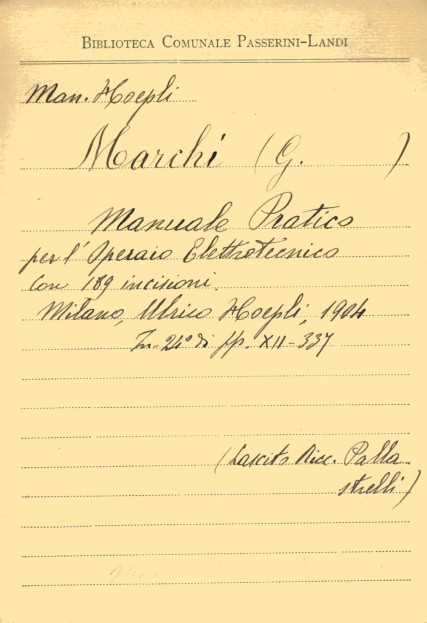 BIBLIOTECA COMUNALE PASSERINI-LANDI
Man. Hoepli
Marchi (G. )
Manuale Pratico
per l'Operaio Elettrotecnico
con 189 incisioni.
Milano, Ulrico Hoepli, 1904
In-24° di pp. XII-337
(Lascito Ricc. Palla
strelli)